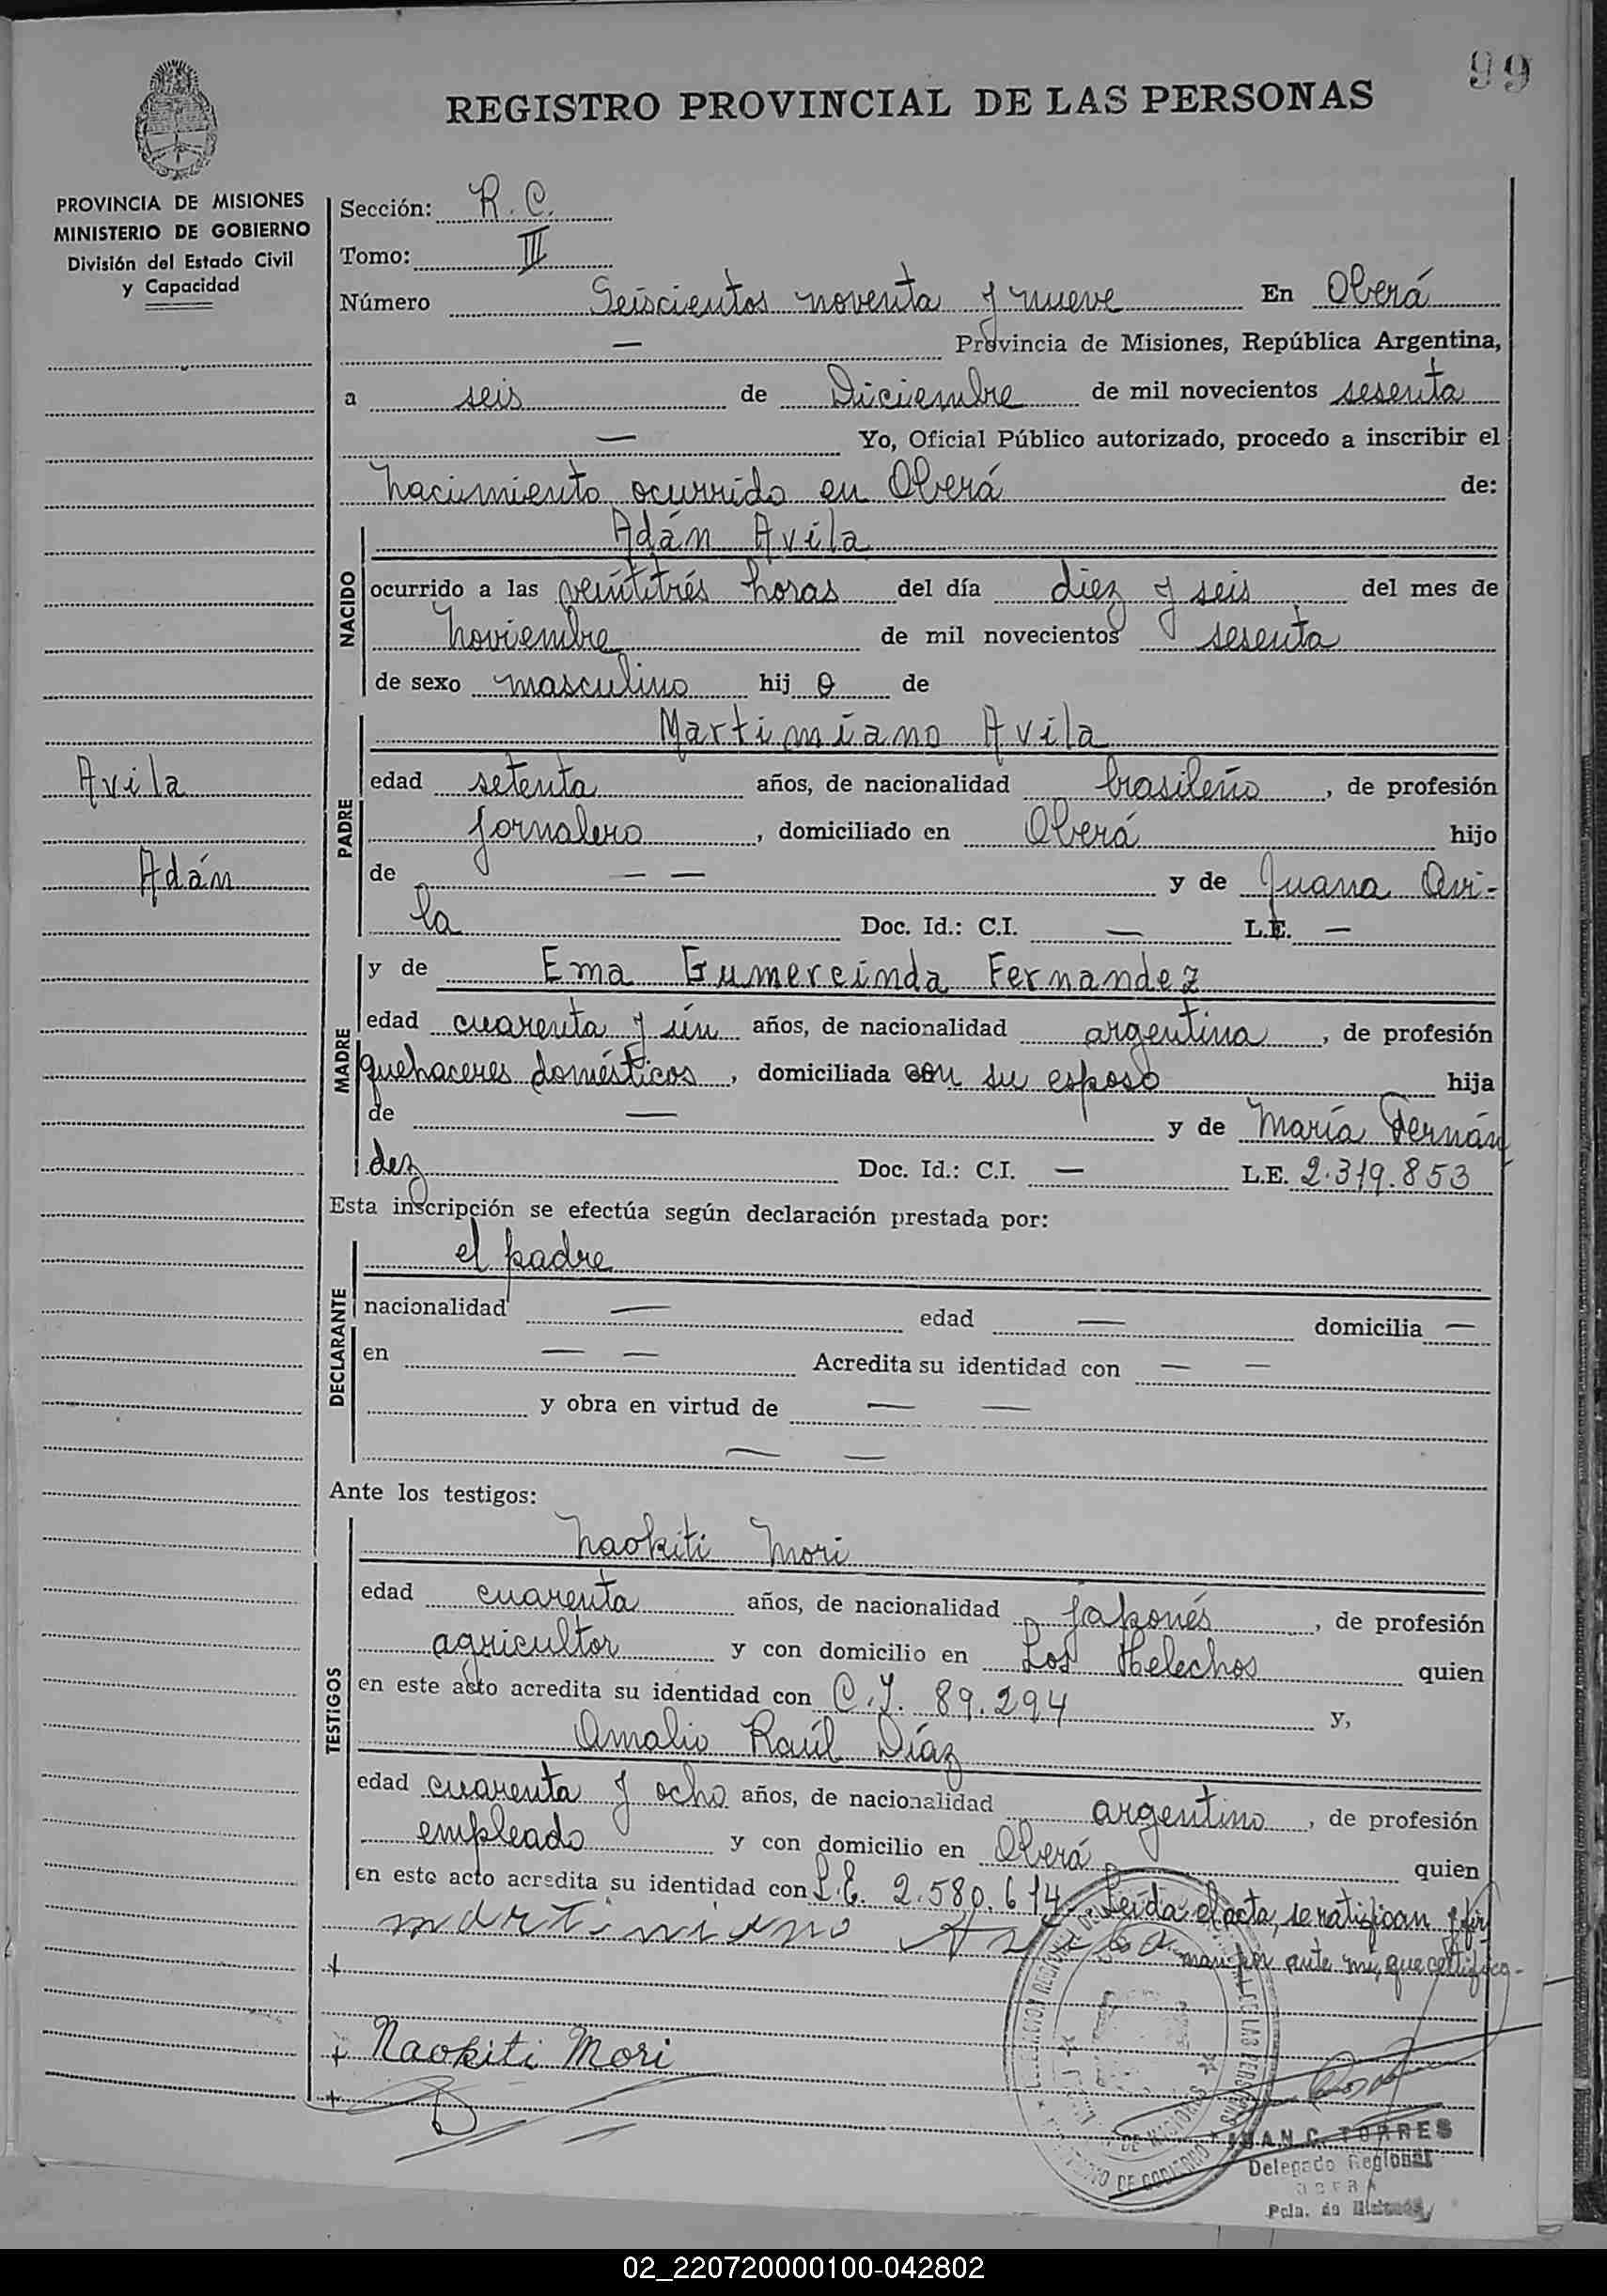 99
REGISTRO PROVINCIAL DE LAS PERSONAS
PROVINCIA DE MISIONES
MINISTERIO DE GOBIERNO
División del Estado Civil
y Capacidad
Sección: R. C.
Tomo: III
Número Seiscientos noventa y nueve En Oberá
— Provincia de Misiones, República Argentina,
a seis de Diciembre de mil novecientos sesenta
— Yo, Oficial Público autorizado, procedo a inscribir el
nacimiento ocurrido en Oberá de:
NACIDO
Adán Avila
ocurrido a las veintitrés horas del día diez y seis del mes de
Noviembre de mil novecientos sesenta
de sexo masculino hij o de
PADRE
Martimiano Avila
Avila
edad setenta años, de nacionalidad brasileño, de profesión
jornalero, domiciliado en Oberá hijo
Adán
de — — y de Juana Avi-
la Doc. Id.: C.I. — L.E. —
MADRE
y de Ema Gumercinda Fernandez
edad cuarenta y ún años, de nacionalidad argentina, de profesión
quehaceres domésticos, domiciliada con su esposo hija
de — y de María Fernán
dez Doc. Id.: C.I. — L.E. 2.319.853
Esta inscripción se efectúa según declaración prestada por:
DECLARANTE
el padre
nacionalidad — edad — domicilia —
en — — Acredita su identidad con — —
y obra en virtud de — —
— —
Ante los testigos:
TESTIGOS
Naokiti Mori
edad cuarenta años, de nacionalidad japonés, de profesión
agricultor y con domicilio en Los Helechos quien
en este acto acredita su identidad con C.I. 89.294 y,
Amalio Raúl Díaz
edad cuarenta y ocho años, de nacionalidad argentino, de profesión
empleado y con domicilio en Oberá quien
en este acto acredita su identidad con L.E. 2.580.614 Leída el acta, se ratifican y fir
martiniano Avila man por ante mí, que certifico-
Naokiti Mori
JUAN C. TORRES
Delegado Regional
OBERA
Pcia. de Misiones
02_220720000100-042802